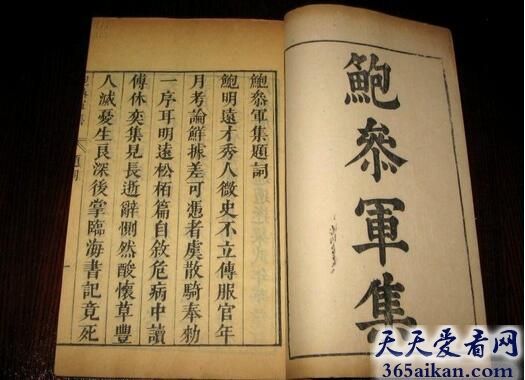 鮑叅軍集
鮑叅軍集題詞
鮑明遠才秀人微史不立傳服官年
月考論鮮據差可憑者虞散騎奉勅
一序耳明遠松栢篇自敘危病中讀
傅休奕集見長逝辭惻然酸懷草豐
人滅憂生良深後掌臨海書記竟死
題詞
天天爱看网
365aikan.com